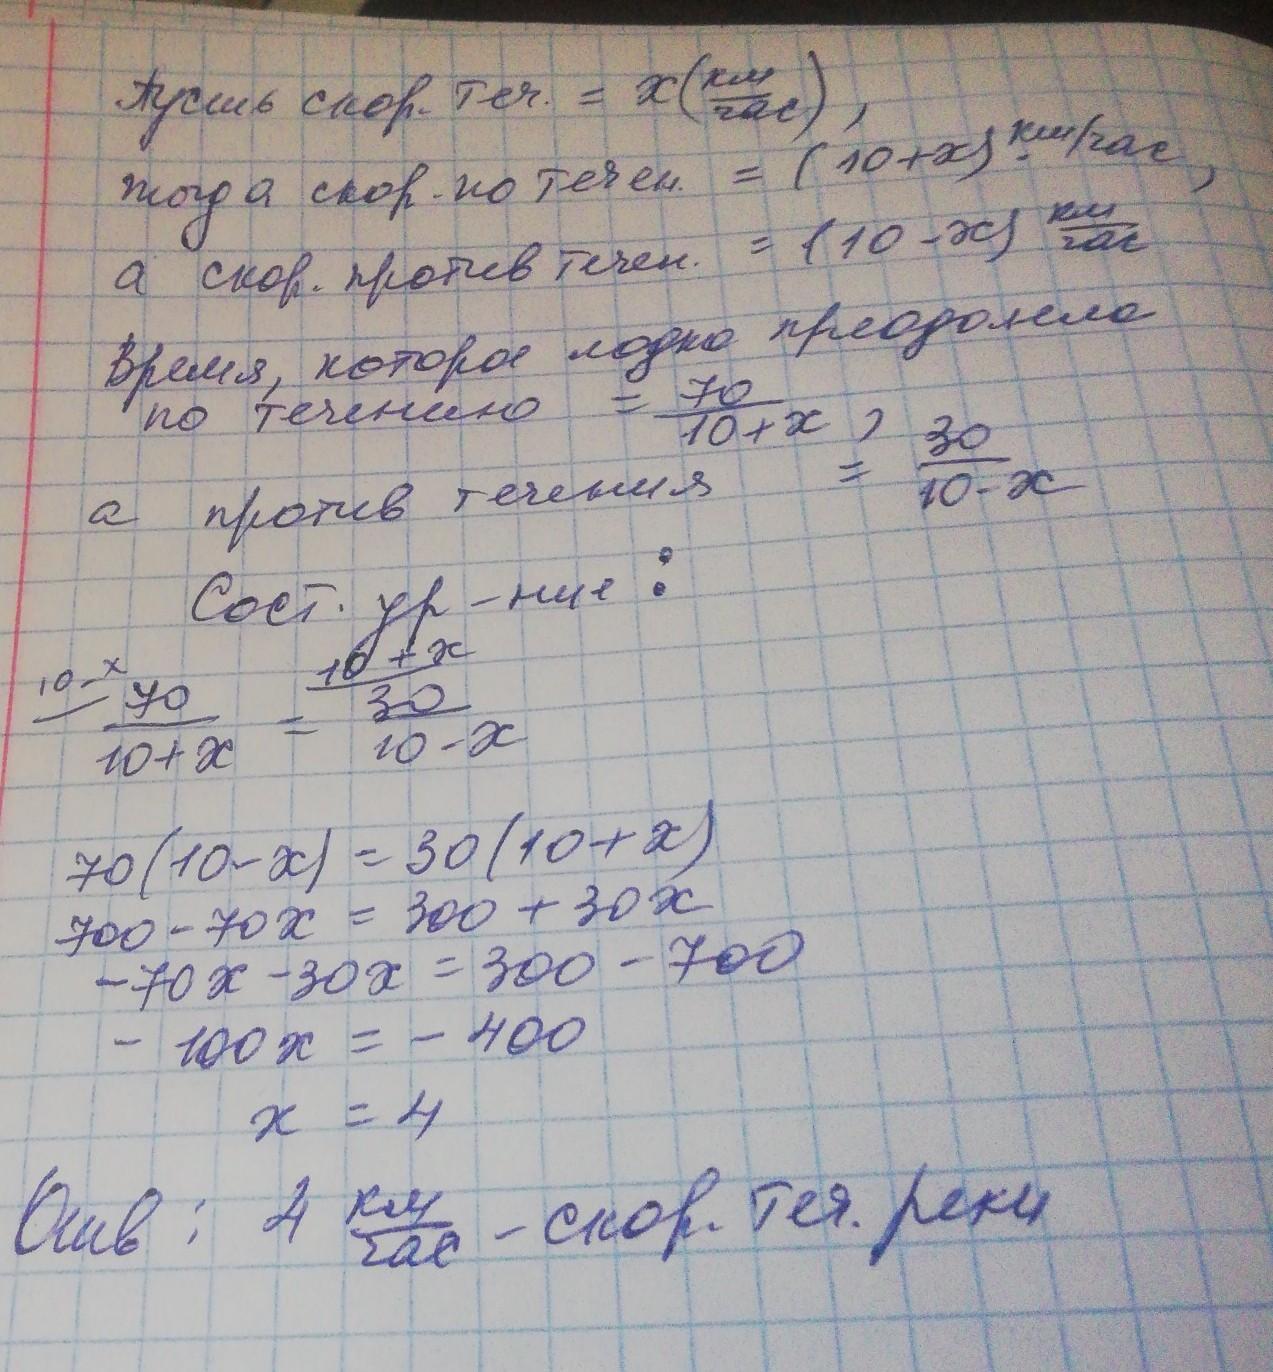 Пусть скор. теч. = x (км/час),
тогда скор. по течен. = (10+x) км/час,
а скор. против течен. = (10-x) км/час
Время, которое лодка преодолела
по течению = 70/10+x,
а против течения = 30/10-x
Сост. ур-ние:
10-x 70/10+x = 10+x 30/10-x
70(10-x) = 30(10+x)
700-70x = 300+30x
-70x-30x = 300-700
- 100x = - 400
x = 4
Отв: 4 км/час - скор. теч. реки